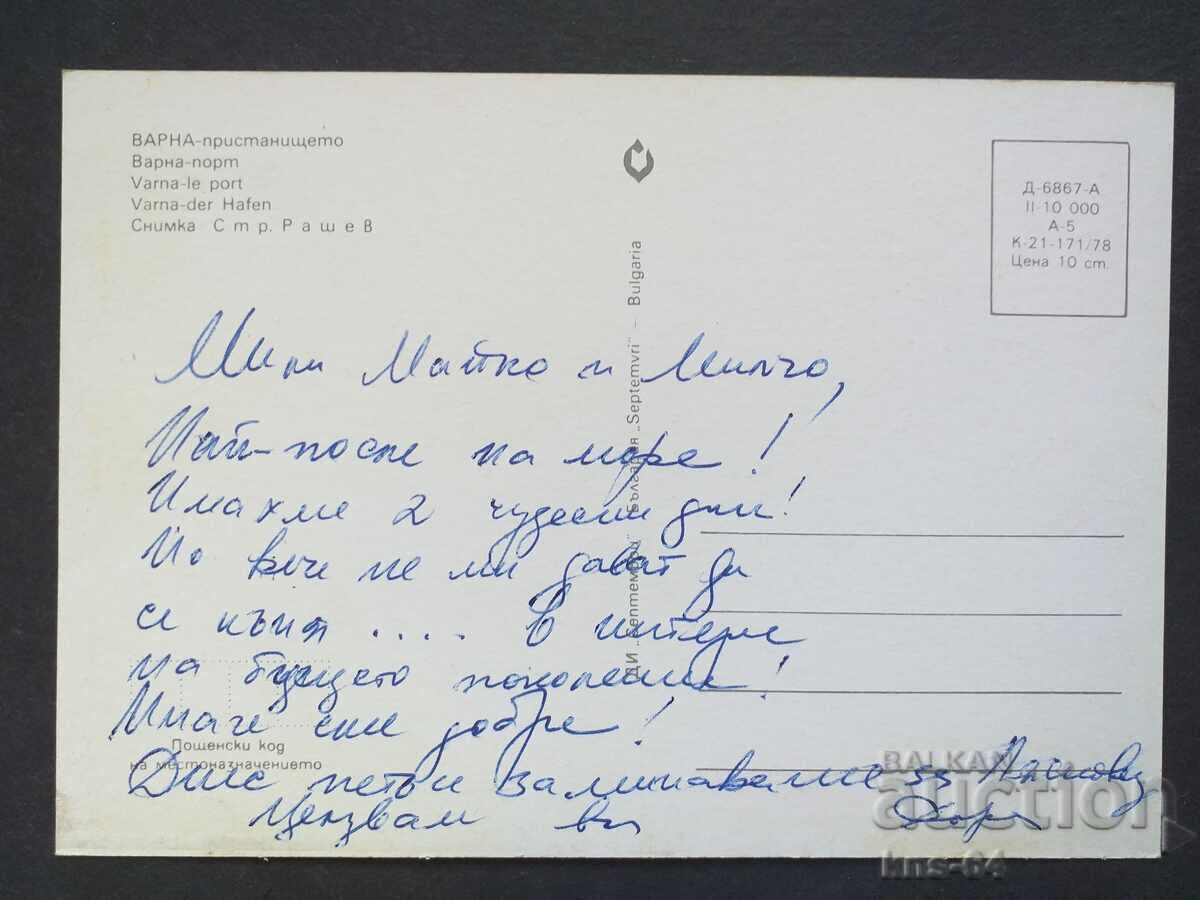 ВАРНА-пристанището
Варна-порт
Varna-le port
Varna-der Hafen
Снимка Стр. Рашев
Д-6867-А
II-10 000
А-5
К-21-171/78
Цена 10 ст.
ДИ „Септември“ България „Septemvri“ – Bulgaria
Мили Майко и Милчо,
Най-после на море!
Имахме 2 чудесни дни!
Но вече не ми дават да
се къпя .... в интерес
на бъдещето поколение!
Иначе сме добре!
Пощенски код
на местоназначението
Днес петък заминаваме за
Целувам ви
BALKAN
auction
kns-64